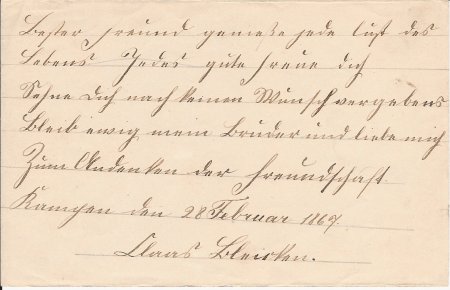 Bester Freund genieße jede Lust des
Lebens Jedes gute freue dich
Sehne dich nach keinen Wunsch vergebens
Bleib ewig mein Bruder und liebe mich
Zum Andenken der Freundschaft
Kampen den 28 Februar 1867.
Claas Bleicken.